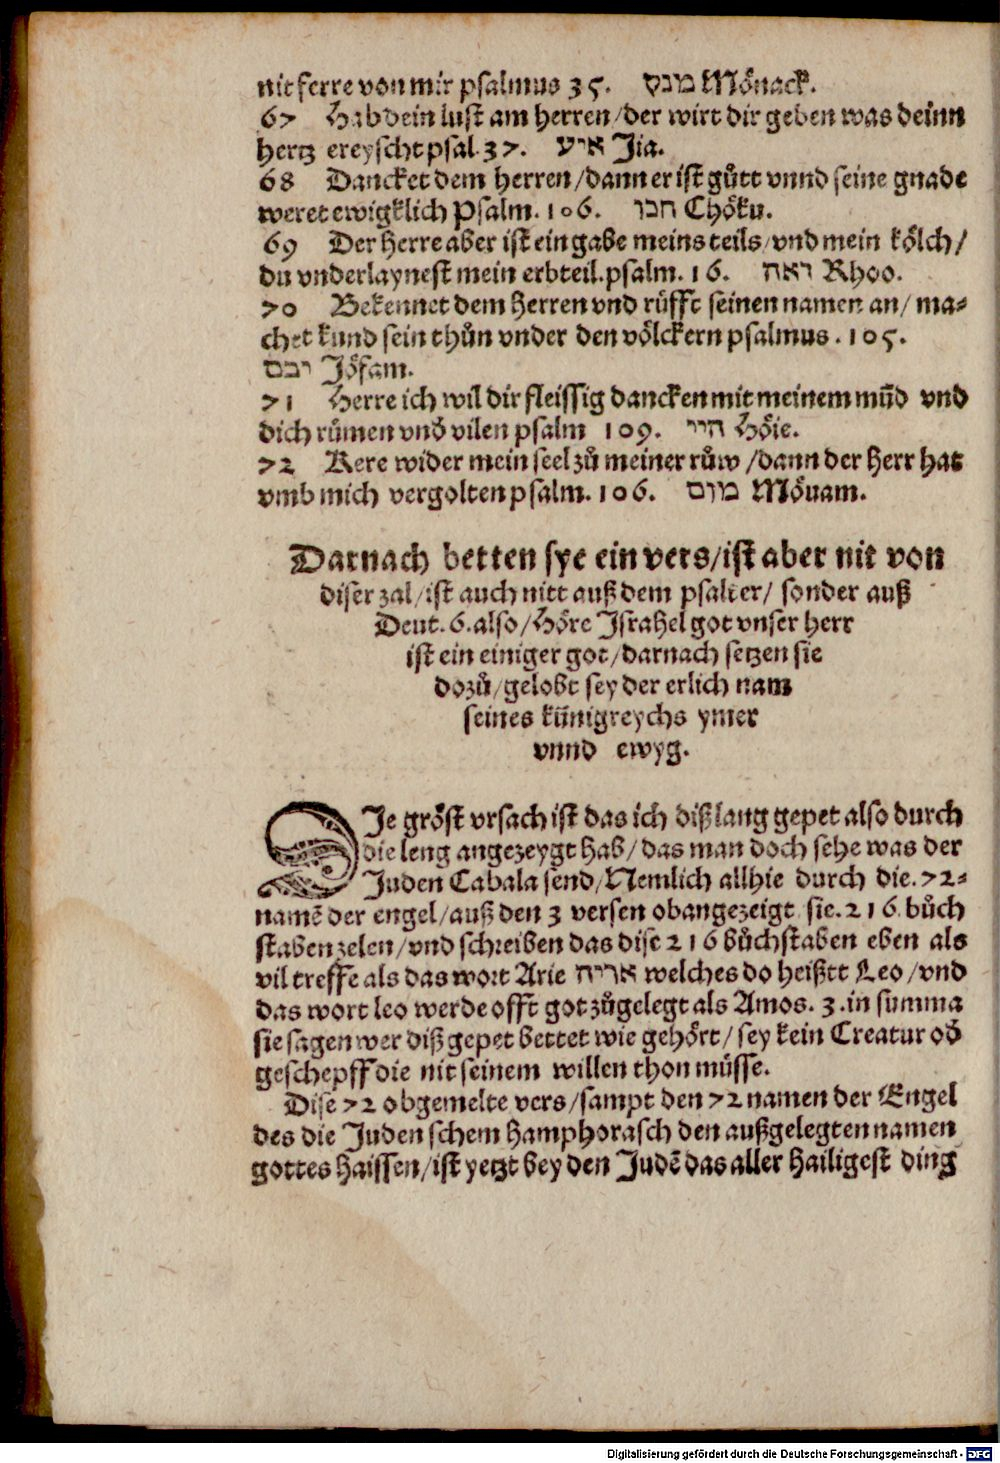 nit ferre von mir psalmus 35. מנק Mönack.
67 Hab dein lust am herren/der wirt dir geben was deinn
hertz ereyscht psal. 37. איע Jia.
68 Dancket dem herren/dann er ist gůtt vnnd seine gnade
weret ewigklich Psalm. 106. חבו Chöku.
69 Der Herre aber ist ein gabe meins teils/vnd mein kölch/
du vnderlaynest mein erbteil. psalm. 16. ראה Rhoo.
70 Bekennet dem Herren vnd růfft seinen namen an/ ma⸗
chet kund sein thůn vnder den völckern psalmus. 105.
יבם Jöfam.
71 Herre ich wil dir fleissig dancken mit meinem mūd vnd
dich rümen vnd̄ vilen psalm 109. היי Höie.
72 Kere wider mein seel zů meiner růw/dann der Herr hat
vmb mich vergolten psalm. 106. מום Möuam.
Darnach betten sye ein vers/ist aber nit von
diser zal/ist auch nitt auß dem psalter/ sonder auß
Deut. 6. also/Höre Jsrahel got vnser herr
ist ein einiger got/darnach setzen sie
dozů/gelobt sey der erlich nam
seines künigreychs ymer
vnnd ewyg.
DJe gröst vrsach ist das ich diß lang gepet also durch
die leng angezeygt hab/das man doch sehe was der
Juden Cabala send/Nemlich allhie durch die. 72⸗
namē der engel/auß den 3 versen obangezeigt sie. 216. bůch
staben zelen/vnd schreiben das dise 216 bůchstaben eben als
vil treffe als das wort Arie אריה welches do heißtt Leo/vnd
das wort leo werde offt got zůgelegt als Amos. 3. in summa
sie sagen wer diß gepet bettet wie gehört/ sey kein Creatur od̄
geschepff die nit seinem willen thon müsse.
Dise 72 obgemelte vers/sampt den 72 namen der Engel
des die Juden schem hamphorasch den außgelegten namen
gottes haissen/ist yetzt bey den Judē das aller hailigest ding
Digitalisierung gefördert durch die Deutsche Forschungsgemeinschaft - DFG